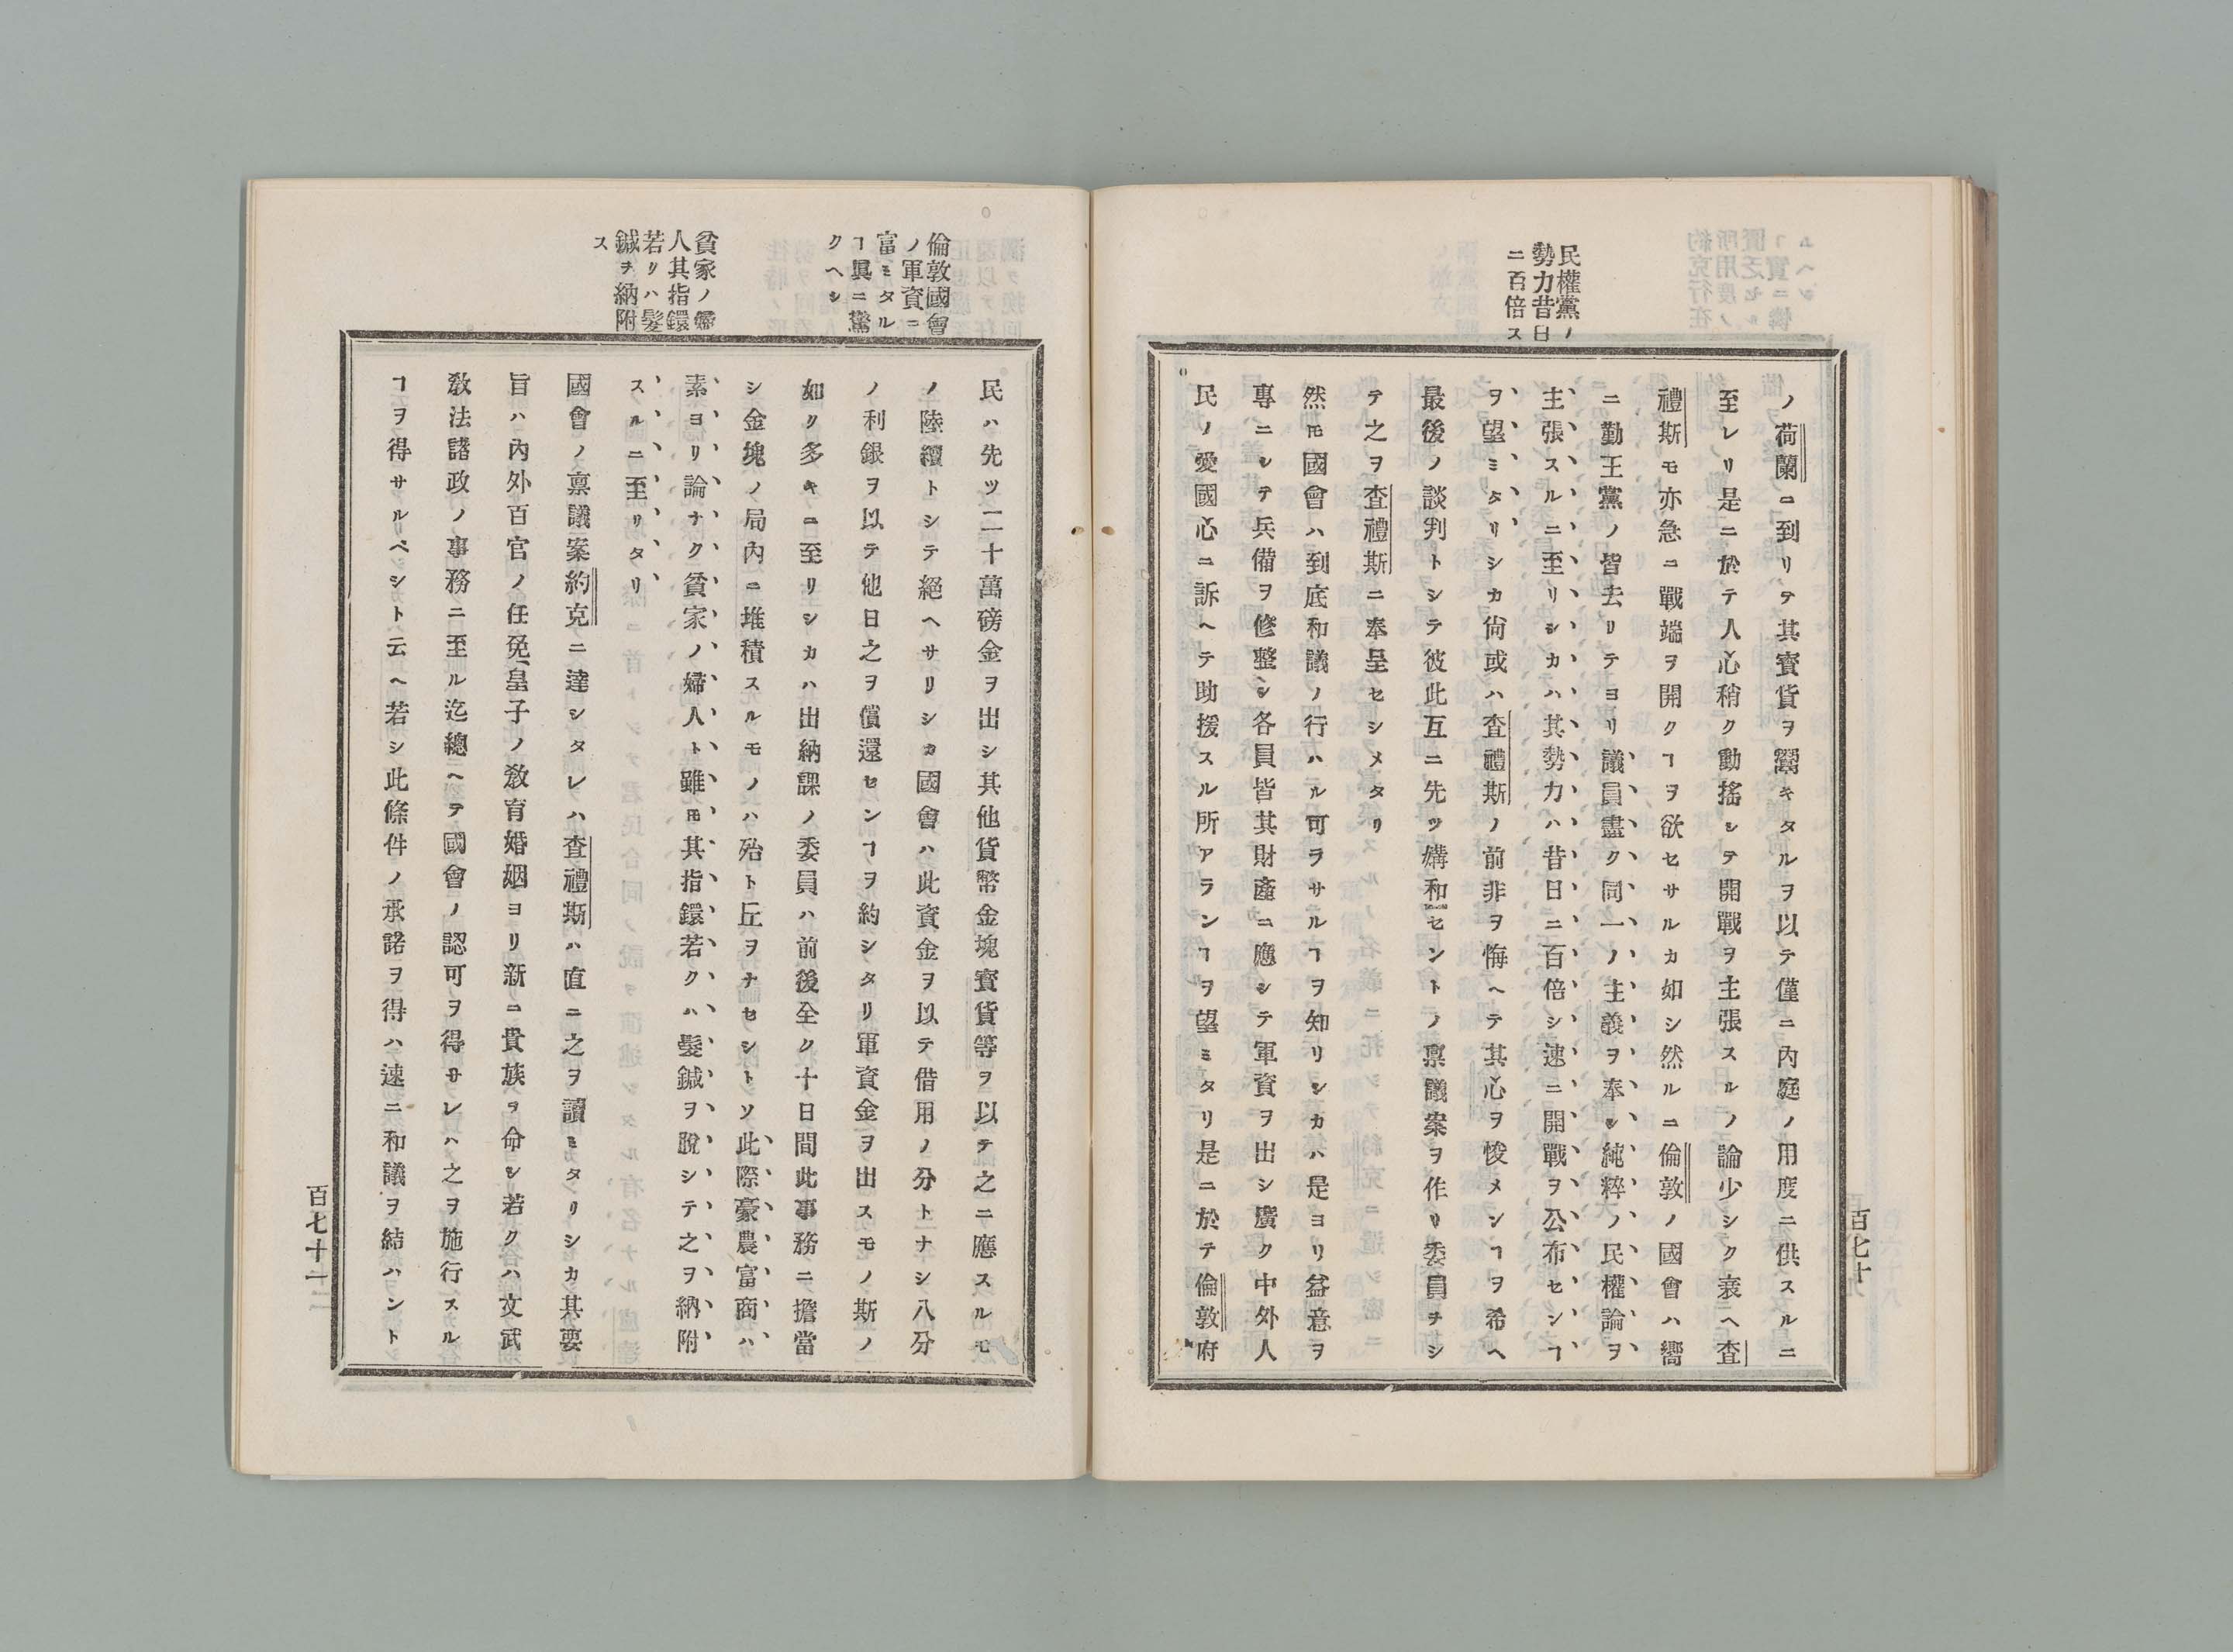 民權黨ノ
勢力昔日
ニ百倍ス
ノ荷蘭ニ到リテ其寶貨ヲ鬻キタルヲ以テ僅ニ內庭ノ用度ニ供スルニ
至レリ是ニ於テ人心稍ク動搖シテ開戰ヲ主張スルノ論少シク衰ヘ査
禮斯モ亦急ニ戰端ヲ開クヿヲ欲セサルカ如シ然ルニ倫敦ノ國會ハ嚮
ニ勤王黨ノ皆去リテヨリ議員盡ク同一ノ主義ヲ奉シ純粹ノ民權論ヲ
主張スルニ至リシカハ其勢力ハ昔日ニ百倍シ速ニ開戰ヲ公布センヿ
ヲ望ミタリシカ尙或ハ査禮斯ノ前非ヲ悔ヘテ其心ヲ悛メンヿヲ希ヘ
最後ノ談判トシテ彼此互ニ先ツ媾和セントノ禀議案ヲ作リ委員ヲシ
テ之ヲ査禮斯ニ奉呈セシメタリ
然𪜈國會ハ到底和議ノ行ハル可ラサルヿヲ知リシカハ是ヨリ益意ヲ
專ニシテ兵備ヲ修整シ各員皆其財產ニ應シテ軍資ヲ出シ廣ク中外人
民ノ愛國心ニ訴ヘテ助援スル所アランヿヲ望ミタリ是ニ於テ倫敦府
百七十
倫敦國會
ノ軍資ニ
富ミタル
ヿ眞ニ驚
クヘシ
貧家ノ婦
人其指鐶
若リハ髮
鍼ヲ納附
ス
民ハ先ツ二十萬磅金ヲ出シ其他貨幣金塊寶貨等ヲ以テ之ニ應スルモ
ノ陸續トシテ絕ヘサリシカ國會ハ此資金ヲ以テ借用ノ分トナシ八分
ノ利銀ヲ以テ他日之ヲ償還センヿヲ約シタリ軍資金ヲ出スモノ斯ノ
如ク多キニ至リシカハ出納課ノ委員ハ前後全ク十日間此事務ニ擔當
シ金塊ノ局內ニ堆積スルモノハ殆ト丘ヲナセシトソ此際豪農富商ハ
素ヨリ論ナク貧家ノ婦人ト雖𪜈其指鐶若クハ髮鍼ヲ脫シテ之ヲ納附
スルニ至リタリ
國會ノ禀議案約克ニ達シタレハ査禮斯ハ直ニ之ヲ讀ミタリシカ其要
旨ハ內外百官ノ任免皇子ノ敎育婚姻ヨリ新ニ貴族ヲ命シ若クハ文武
敎法諸政ノ事務ニ至ル迄總ヘテ國會ノ認可ヲ得サレハ之ヲ施行スル
ヿヲ得サルベシト云ヘ若シ此條件ノ承諾ヲ得ハ速ニ和議ヲ結ハント
百七十一